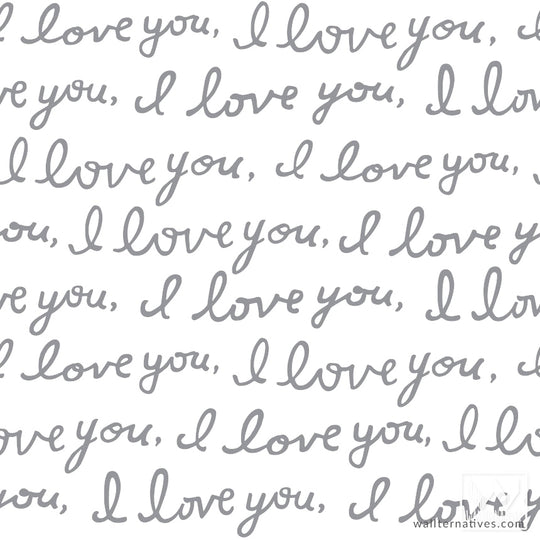 I love you, I love you,
you, I love you, I
I love you, I love you,
I love you, I love
you, I love you, I
I love you, I love you,
love you, I love you, I
you, I love you, I love
wallternatives.com